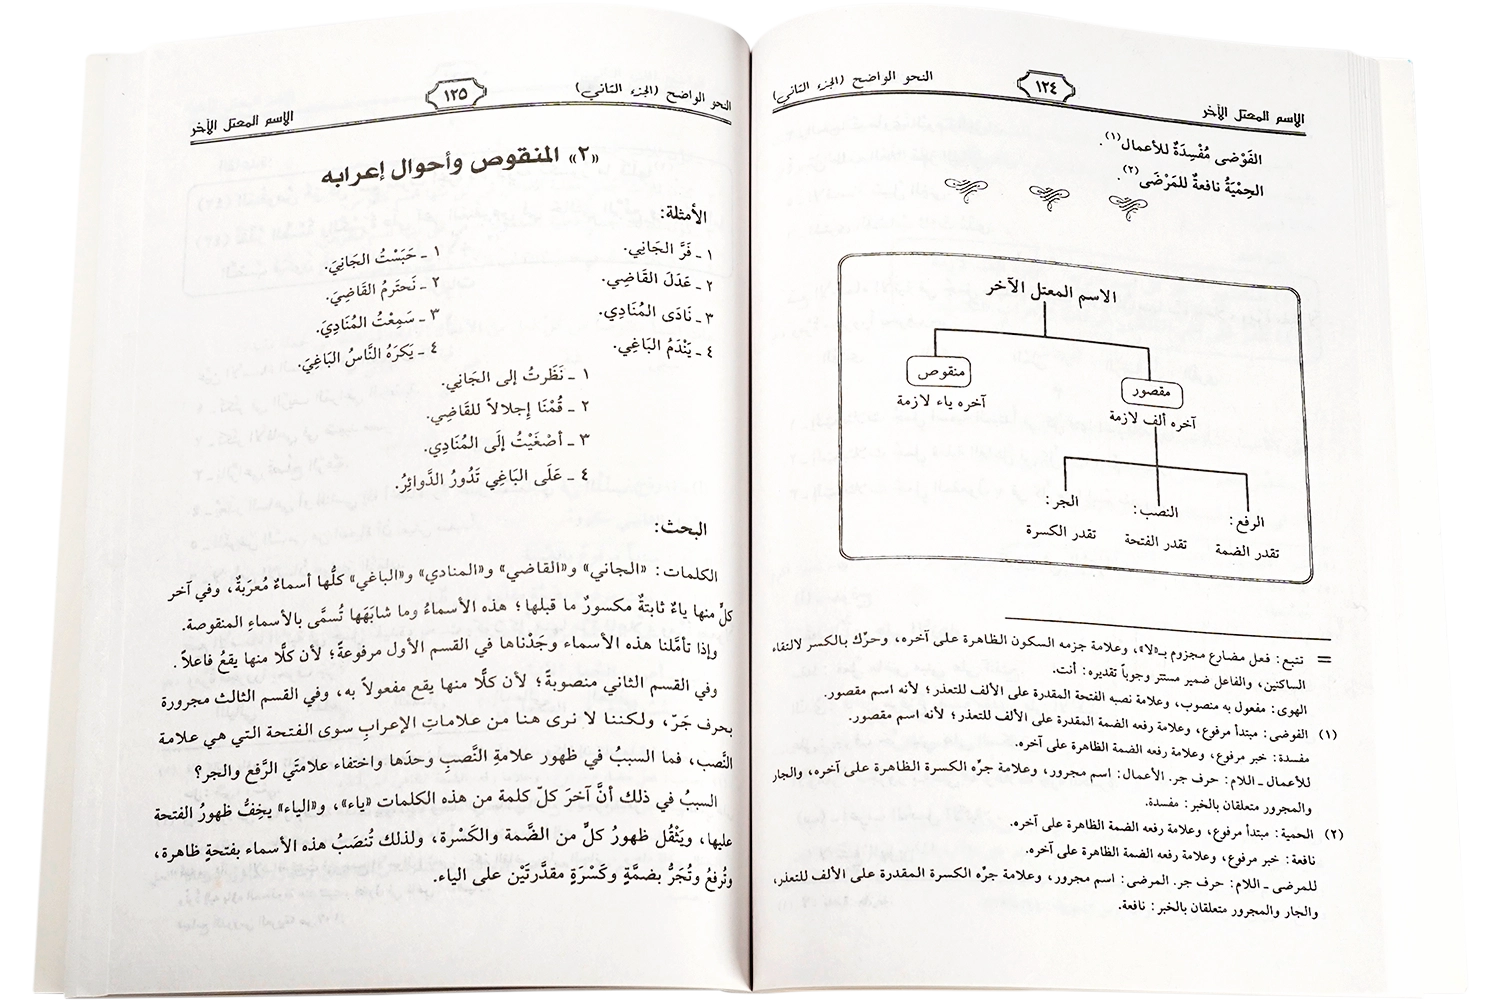 الاسم المعتل الآخر
١٢٤
النحو الواضح (الجزء الثاني)
الفَوْضى مُفْسِدَةٌ للأعمال(١).
الحِمْيَةُ نافعةٌ للمَرْضَى(٢).
الاسم المعتل الآخر
مقصور
منقوص
آخره ألف لازمة
آخره ياء لازمة
الرفع:
النصب:
الجر:
تقدر الضمة
تقدر الفتحة
تقدر الكسرة
= تتبع: فعل مضارع مجزوم بـ«لا»، وعلامة جزمه السكون الظاهرة على آخره، وحرّك بالكسر لالتقاء
الساكنين، والفاعل ضمير مستتر وجوباً تقديره: أنت.
الهوى: مفعول به منصوب، وعلامة نصبه الفتحة المقدرة على الألف للتعذر؛ لأنه اسم مقصور.
(١) الفوضى: مبتدأ مرفوع، وعلامة رفعه الضمة المقدرة على الألف للتعذر؛ لأنه اسم مقصور.
مفسدة: خبر مرفوع، وعلامة رفعه الضمة الظاهرة على آخره.
للأعمال ـ اللام: حرف جر. الأعمال: اسم مجرور، وعلامة جرّه الكسرة الظاهرة على آخره، والجار
والمجرور متعلقان بالخبر: مفسدة.
(٢) الحمية: مبتدأ مرفوع، وعلامة رفعه الضمة الظاهرة على آخره.
نافعة: خبر مرفوع، وعلامة رفعه الضمة الظاهرة على آخره.
للمرضى ـ اللام: حرف جر. المرضى: اسم مجرور، وعلامة جرّه الكسرة المقدرة على الألف للتعذر،
والجار والمجرور متعلقان بالخبر: نافعة.
النحو الواضح (الجزء الثاني)
١٢٥
الاسم المعتل الآخر
«٢» المنقوص وأحوال إعرابه
الأمثلة:
١ ـ فَرَّ الجَانِي.
٢ ـ عَدَلَ القَاضِي.
٣ ـ نَادَى المُنَادِي.
٤ ـ يَنْدَمُ البَاغِي.
١ ـ حَبَسْتُ الجَانِيَ.
٢ ـ نَحتَرمُ القَاضِيَ.
٣ ـ سَمِعْتُ المُنَادِيَ.
٤ ـ يَكرَهُ النَّاسُ البَاغِيَ.
١ ـ نَظَرتُ إلى الجَانِي.
٢ ـ قُمْنَا إجلالاً للقَاضِي.
٣ ـ أصْغَيْتُ إلَى المُنَادِي.
٤ ـ عَلَى البَاغِي تَدُورُ الدَّوائِرُ.
البحث:
الكلمات: «الجاني» و«القاضي» و«المنادي» و«الباغي» كلُّها أسماءٌ مُعرَبةٌ، وفي آخر
كلٍّ منها ياءٌ ثابتةٌ مكسورٌ ما قبلها؛ هذه الأسماءُ وما شابَهَها تُسمَّى بالأسماءِ المنقوصة.
وإذا تأمَّلنا هذه الأسماء وجَدْناها في القسم الأول مرفوعةً؛ لأن كلًّا منها يقعُ فاعلاً.
وفي القسم الثاني منصوبةً؛ لأن كلًّا منها يقع مفعولاً به، وفي القسم الثالث مجرورة
بحرف جَرّ، ولكننا لا نرى هنا من علاماتِ الإعرابِ سوى الفتحة التي هي علامة
النَّصب، فما السببُ في ظهور علامةِ النَّصبِ وحدَها واختفاء علامتَي الرَّفع والجر؟
السببُ في ذلك أنَّ آخرَ كلّ كلمة من هذه الكلمات «ياء»، و«الياء» يخِفُّ ظهورُ الفتحة
عليها، ويَثْقُل ظهورُ كلٍّ من الضَّمة والكَسْرة، ولذلك تُنصَبُ هذه الأسماء بفتحةٍ ظاهرة،
وتُرفعُ وتُجَرُّ بضمَّةٍ وكَسْرَةٍ مقدَّرتَيْن على الياء.